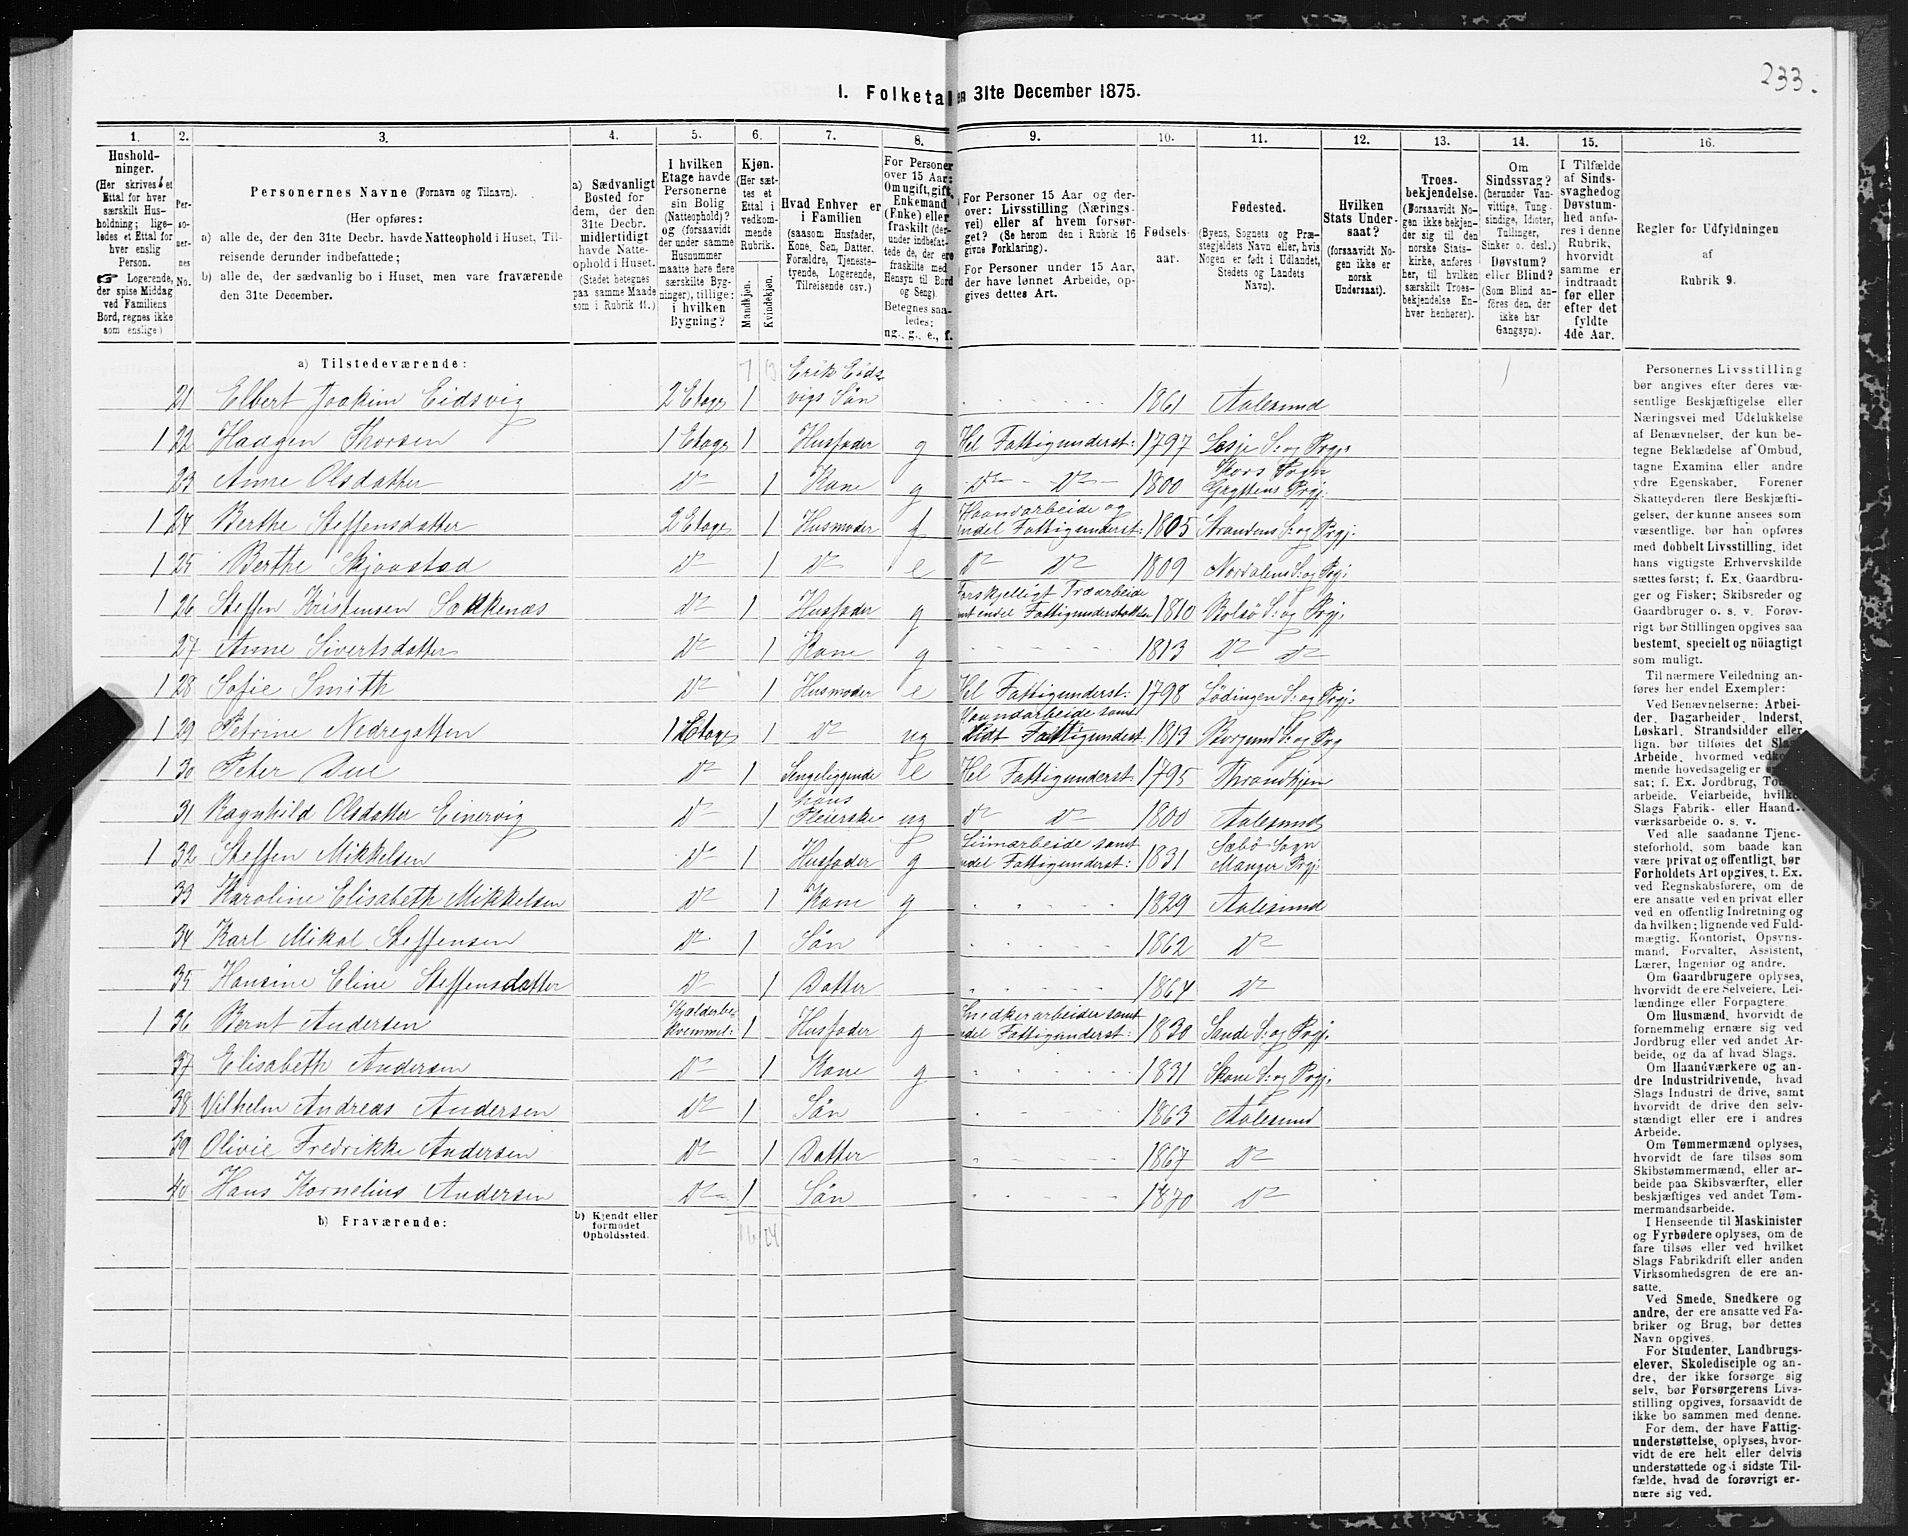 233.
I. Folketal den 31te December 1875.
1. 2. 3. 4. 5. 6. 7. 8. 9. 10. 11. 12. 13. 14. 15. 16.
Hushold-
ninger.
(Her skrives et
Ettal for hver
særskilt Hus-
holdning; lige-
ledes et Ettal for
hver enslig
Person.
☞ Logerende,
der spise Middag
ved Familiens
Bord, regnes ikke
som enslige)
Per-
so-
ner-
nes
No.
Personernes Navne (Fornavn og Tilnavn).
(Her opføres:
a) alle de, der den 31te Decbr. havde Natteophold i Huset, Til-
reisende derunder indbefattede;
b) alle de, der sædvanlig bo i Huset, men vare fraværende
den 31te December.
a) Sædvanligt
Bosted for
dem, der den
31te Decbr.
midlertidigt
havde Natte-
ophold i Huset.
(Stedet betegnes
paa samme Maade
som i Rubrik 11.)
I hvilken
Etage havde
Personerne
sin Bolig
(Natteophold)?
og (forsaavidt
der under samme
Husnummer
maatte høre flere
særskilte Byg-
ninger), tillige:
i hvilken
Bygning?
Kjøn.
(Her sæt-
tes et
Ettal i
vedkom-
mende
Rubrik.
Mandkjøn.
Kvindekjøn.
Hvad Enhver er
i Familien
(saasom Husfader,
Kone, Søn, Datter,
Forældre, Tjeneste-
tyende, Logerende,
Tilreisende osv.)
For Personer
over 15 Aar:
Om ugift, gift,
Enkemand
(Enke) eller
fraskilt (der-
under indbefat-
tede de, der ere
fraskilte med
Hensyn til Bord
og Seng).
Betegnes saa-
ledes:
ug., g., e., f.
For Personer 15 Aar og der-
over: Livsstilling (Nærings-
vei) eller af hvem forsør-
get? (Se herom den i Rubrik 16
givne Forklaring).
For Personer under 15 Aar,
der have lønnet Arbeide, op-
gives dettes Art.
Fødsels-
aar.
Fødested.
(Byens, Sognets og Præ-
stegjeldets Navn eller, hvis
Nogen er født i Udlandet,
Stedets og Landets
Navn).
Hvilken
Stats Under-
saat?
(forsaavidt No-
gen ikke er
norsk
Undersaat).
Troes-
bekjendelse.
(Forsaavidt No-
gen ikke bekjen-
der sig til den
norske Stats-
kirke, anføres
her, til hvilken
særskilt Troes-
bekjendelse En-
hver henhører).
Om
Sindssvag?
(herunder Van-
vittige, Tung-
sindige, Idioter,
Tullinger,
Sinker o. desl.)
Døvstum?
eller Blind?
(Som Blind an-
føres den, der
ikke har
Gangsyn).
I Tilfælde
af Sinds-
svaghed og
Døvstum-
hed anfø-
res i denne
Rubrik,
hvorvidt
samme er
indtraadt
før eller
efter det
fyldte
4de Aar.
Regler for Udfyldningen
af
Rubrik 9.
a) Tilstedeværende:
7 13
21 Elbert Joakim Eidsvig 2 Etage 1 Erik Eids-vigs Søn 1861 Aalesund
1 22 Haagen Thorsen 1 Etage 1 Husfader g Hel Fattigunderst: 1797 Lesje S: og Prgj:
23 Anne Olsdatter Do 1 Kone g Do Do 1800 Kors Sogn Gryttens Prgj.
1 24 Berthe Steffensdatter 2 Etage 1 Husmoder f Haandarbeide og endel Fattigunderst: 1805 Strandens S: og Prgj.
1 25 Berthe Skjaastad Do 1 Do e Do Do 1809 Nordalens S: og Prgj:
1 26 Steffen Kristensen Sækkenæs Do 1 Husfader g Forskjelligt Træarbeide samt endel Fattigunderstøttelse 1810 Bolsø S: og Prgj.
27 Anne Sivertsdatter Do 1 Kone g 1813 Do Do
1 28 Sofie Smith Do 1 Husmoder e Hel Fattigunderst: 1798 Lødingen S: og Prgj:
1 29 Petrine Nedregotten 1 Etage 1 Do ug Haandarbeide samt Lidt Fattigunderst. 1813 Borgund S: og Prg
1 30 Peter Due Do 1 Sengeliggende e Hel Fattigunderst. 1795 Throndhjem
31 Ragnhild Olsdatter Einervig Do 1 hans Pleierske ug Do Do 1800 Aalesund
1 32 Steffen Mikkelsen Do 1 Husfader g Liimarbeide samt endel Fattigunderst: 1831 Sæbø Sogn Manger Prgj.
33 Karoline Elisabeth Mikkelsen Do 1 Kone g 1829 Aalesund
34 Karl Mikal Steffensen Do 1 Søn 1862 Do
35 Hansine Eline Steffensdatter Do 1 Datter 1864 Do
1 36 Bernt Andersen Kjælderbe-kvemmel: 1 Husfader g Snedkerarbeider samt endel Fattigunderst: 1830 Sande S: og Prgj.
37 Elisabeth Andersen Do 1 Kone g 1831 Skone S: og Prgj.
38 Vilhelm Andreas Andersen Do 1 Søn 1863 Aalesund
39 Olivie Fredrikke Andersen Do 1 Datter 1867 Do
40 Hans Kornelius Andersen Do 1 Søn 1870 Do
b) Fraværende:
b) Kjendt eller
formodet
Opholdssted.
16 24
Personernes Livsstilling
bør angives efter deres væ-
sentlige Beskjæftigelse eller
Næringsvei med Udelukkelse
af Benævnelser, der kun be-
tegne Beklædelse af Ombud,
tagne Examina eller andre
ydre Egenskaber. Forener
Skatteyderen flere Beskjæfti-
gelser, der kunne ansees som
væsentlige, bør han opføres
med dobbelt Livsstilling, idet
hans vigtigste Erhvervskilde
sættes først; f. Ex. Gaardbru-
ger og Fisker; Skibsreder og
Gaardbruger o. s. v. Forøv-
rigt bør Stillingen opgives saa
bestemt, specielt og nöiagtigt
som muligt.
Til nærmere Veiledning an-
føres her endel Exempler:
Ved Benævnelserne: Arbei-
der, Dagarbeider, Inderst,
Løskarl, Strandsidder eller
lign. bør tilføies det Slags
Arbeide, hvormed vedkom-
mende hovedsagelig er
sat; f. Ex. Jordbrug, Tom-
arbeide, Veiarbeide, hvilket
Slags Fabrik- eller Haand-
værksarbeide o. s. v.
Ved alle saadanne Tjene-
steforhold, som baade kan
være privat og offentlig, bør
Forholdets Art opgives, t. Ex.
ved Regnskabsførere, om de
ere ansatte ved en privat eller
ved en offentlig Indretning og
da hvilken; lignende ved Fuld-
mægtig, Kontorist, Opsyns-
mand, Forvalter, Assistent,
Lærer, Ingeniør og andre.
Om Gaardbrugere oplyses,
hvorvidt de ere Selveiere, Lei-
lændinge eller Forpagtere.
Om Husmænd, hvorvidt de
fornemmelig ernære sig ved
Jordbrug eller ved andet Ar-
beide, og da af hvad Slags.
Om Haandværkere og an-
dre Industridrivende, hvad
Slags Industri de drive, samt
hvorvidt de drive den selv-
stændigt eller ere i andres
Arbeide.
Om Tømmermænd oplyses,
hvorvidt de fare tilsøs som
Skibstømmermænd, eller ar-
beide paa Skibsværfter, eller
beskjæftiges ved andet Tøm-
mermandsarbeide.
I Henseende til Maskinister
og Fyrbødere oplyses, om de
fare tilsøs eller ved hvilket
Slags Fabrikdrift eller anden
Virksomhedsgren de ere an-
satte.
Ved Smede, Snedkere og
andre, der ere ansatte ved Fa-
briker og Brug, bør dettes
Navn opgives.
For Studenter, Landbrugs-
elever, Skoledisciple og an-
dre, der ikke forsørge sig
selv, bør Forsørgerens Livs-
stilling opgives, forsaavidt de
ikke bo sammen med denne.
For dem, der have Fattig-
understøttelse, oplyses, hvor-
vidt de ere helt eller delvis
understøttede og i sidste Til-
fælde, hvad de forøvrigt er-
nære sig ved.